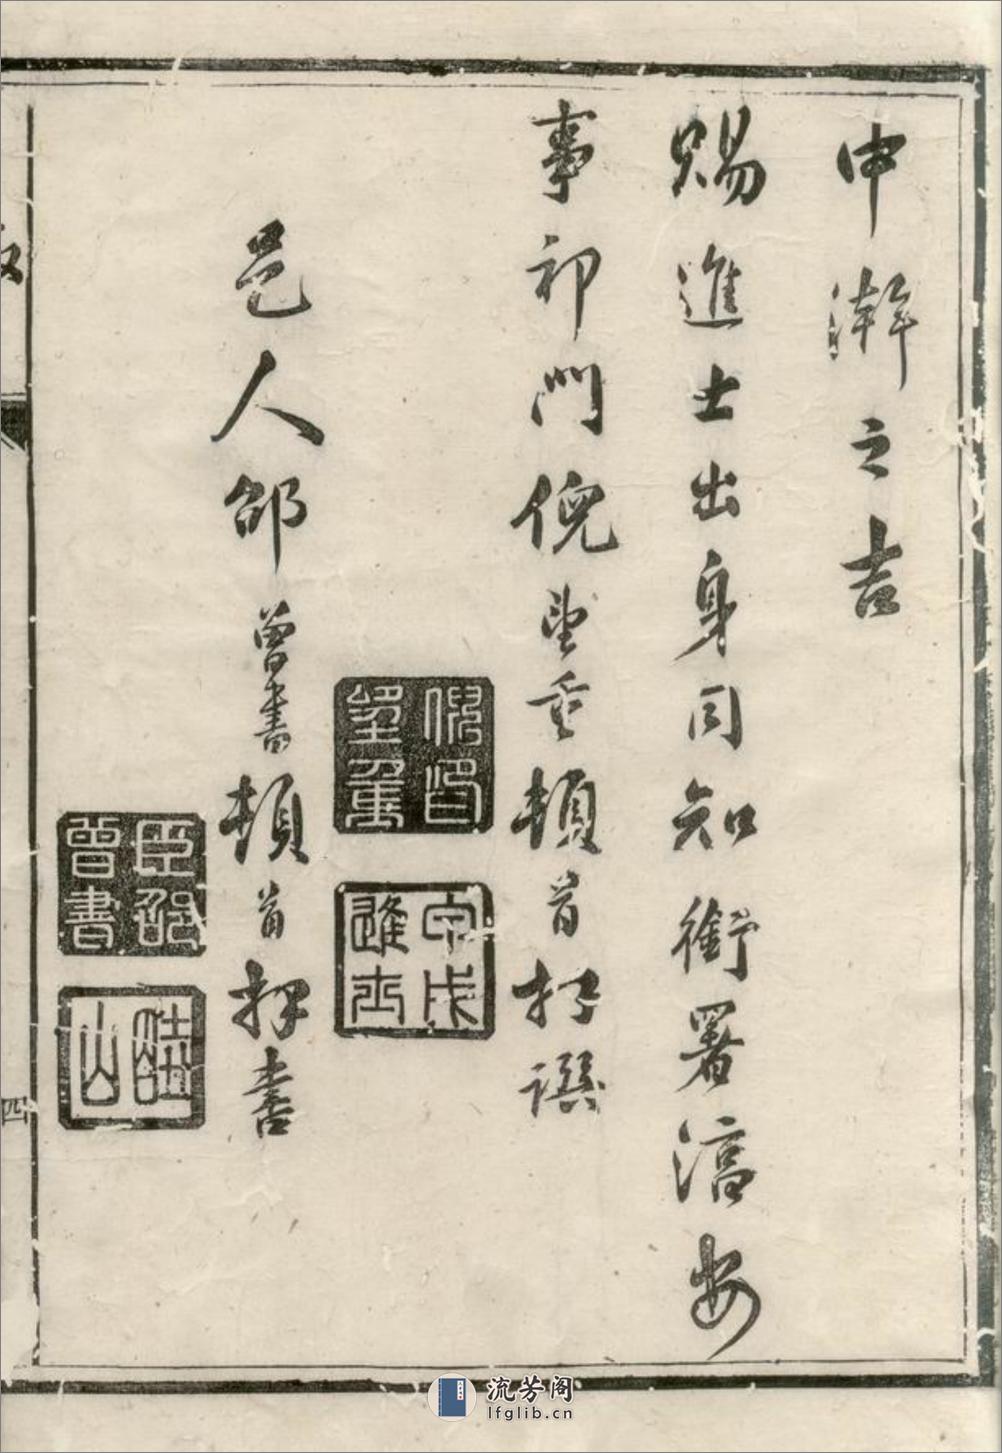 中澣之吉
賜進士出身同知銜署淳安
事祁門倪望重頓首拜撰
倪印望重
甲戌進士
邑人邵曾書頓首拜書
臣邵曾書
山
四
流芳阁
lfglib.cn